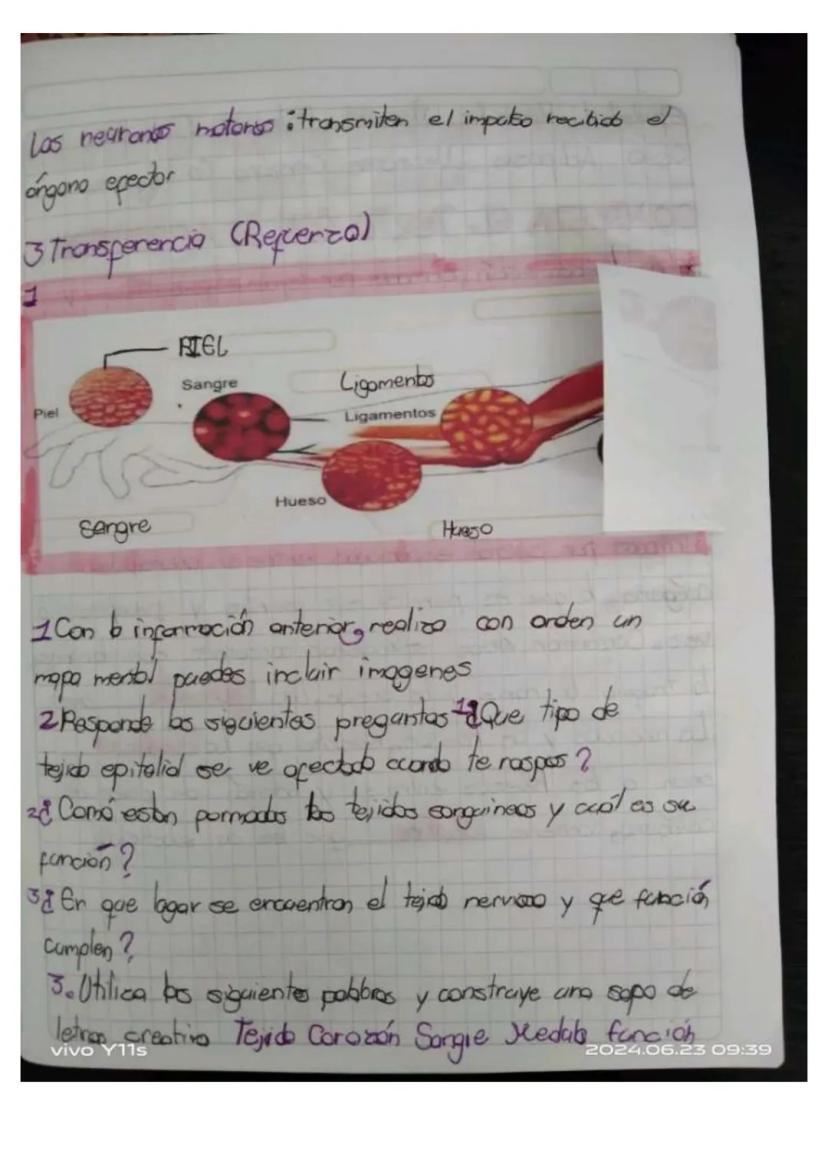 Las neuronas motoras: transmiten el impulso recibido el
órgano efector
3 Transferencia (Refuerzo)
1
PIEL
Sangre
Ligamentos
Piel
Ligamentos
Hueso
Sangre
Hueso
1 Con la información anterior, realiza con orden un
mapa mental puedes incluir imagenes
2 Responde las siguientes preguntas 1¿Que tipo de
tejido epitelial se ve afectado cuando te raspas?
2¿Comó estan formados los tejidos sanguineos y cuál es su
función?
3¿En que lugar se encuentran el tejido nervioso y que función
cumplen?
3. Utiliza las siguientes palabras y construye una sopa de
letras creativa Tejido Corazón Sangre Medula función
vivo Y11s
2024.06.23 09:39